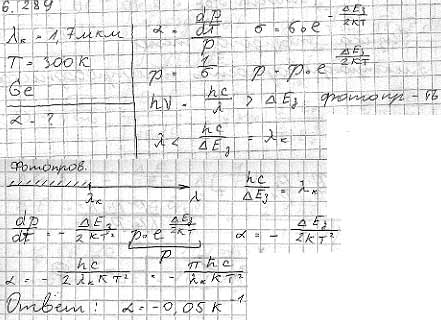 6.289
λк = 1,7 мкм
T = 300K
Ge
α - ?
α = (dρ/dt)/ρ   σ = σ₀e^(-ΔEз/2kT)
ρ = 1/σ   ρ = ρ₀e^(ΔEз/2kT)
hν = hc/λ > ΔEз фотопр-ть
λ < hc/ΔEз = λк
Фотопров.
λк   λ   hc/ΔEз = λк
dρ/dt = - ΔEз/2kT² ρ₀e^(ΔEз/2kT)   α = - ΔEз/2kT²
ρ
α = - hc/2λкkT² = - πħc/λкkT²
Ответ: α = -0,05 K⁻¹